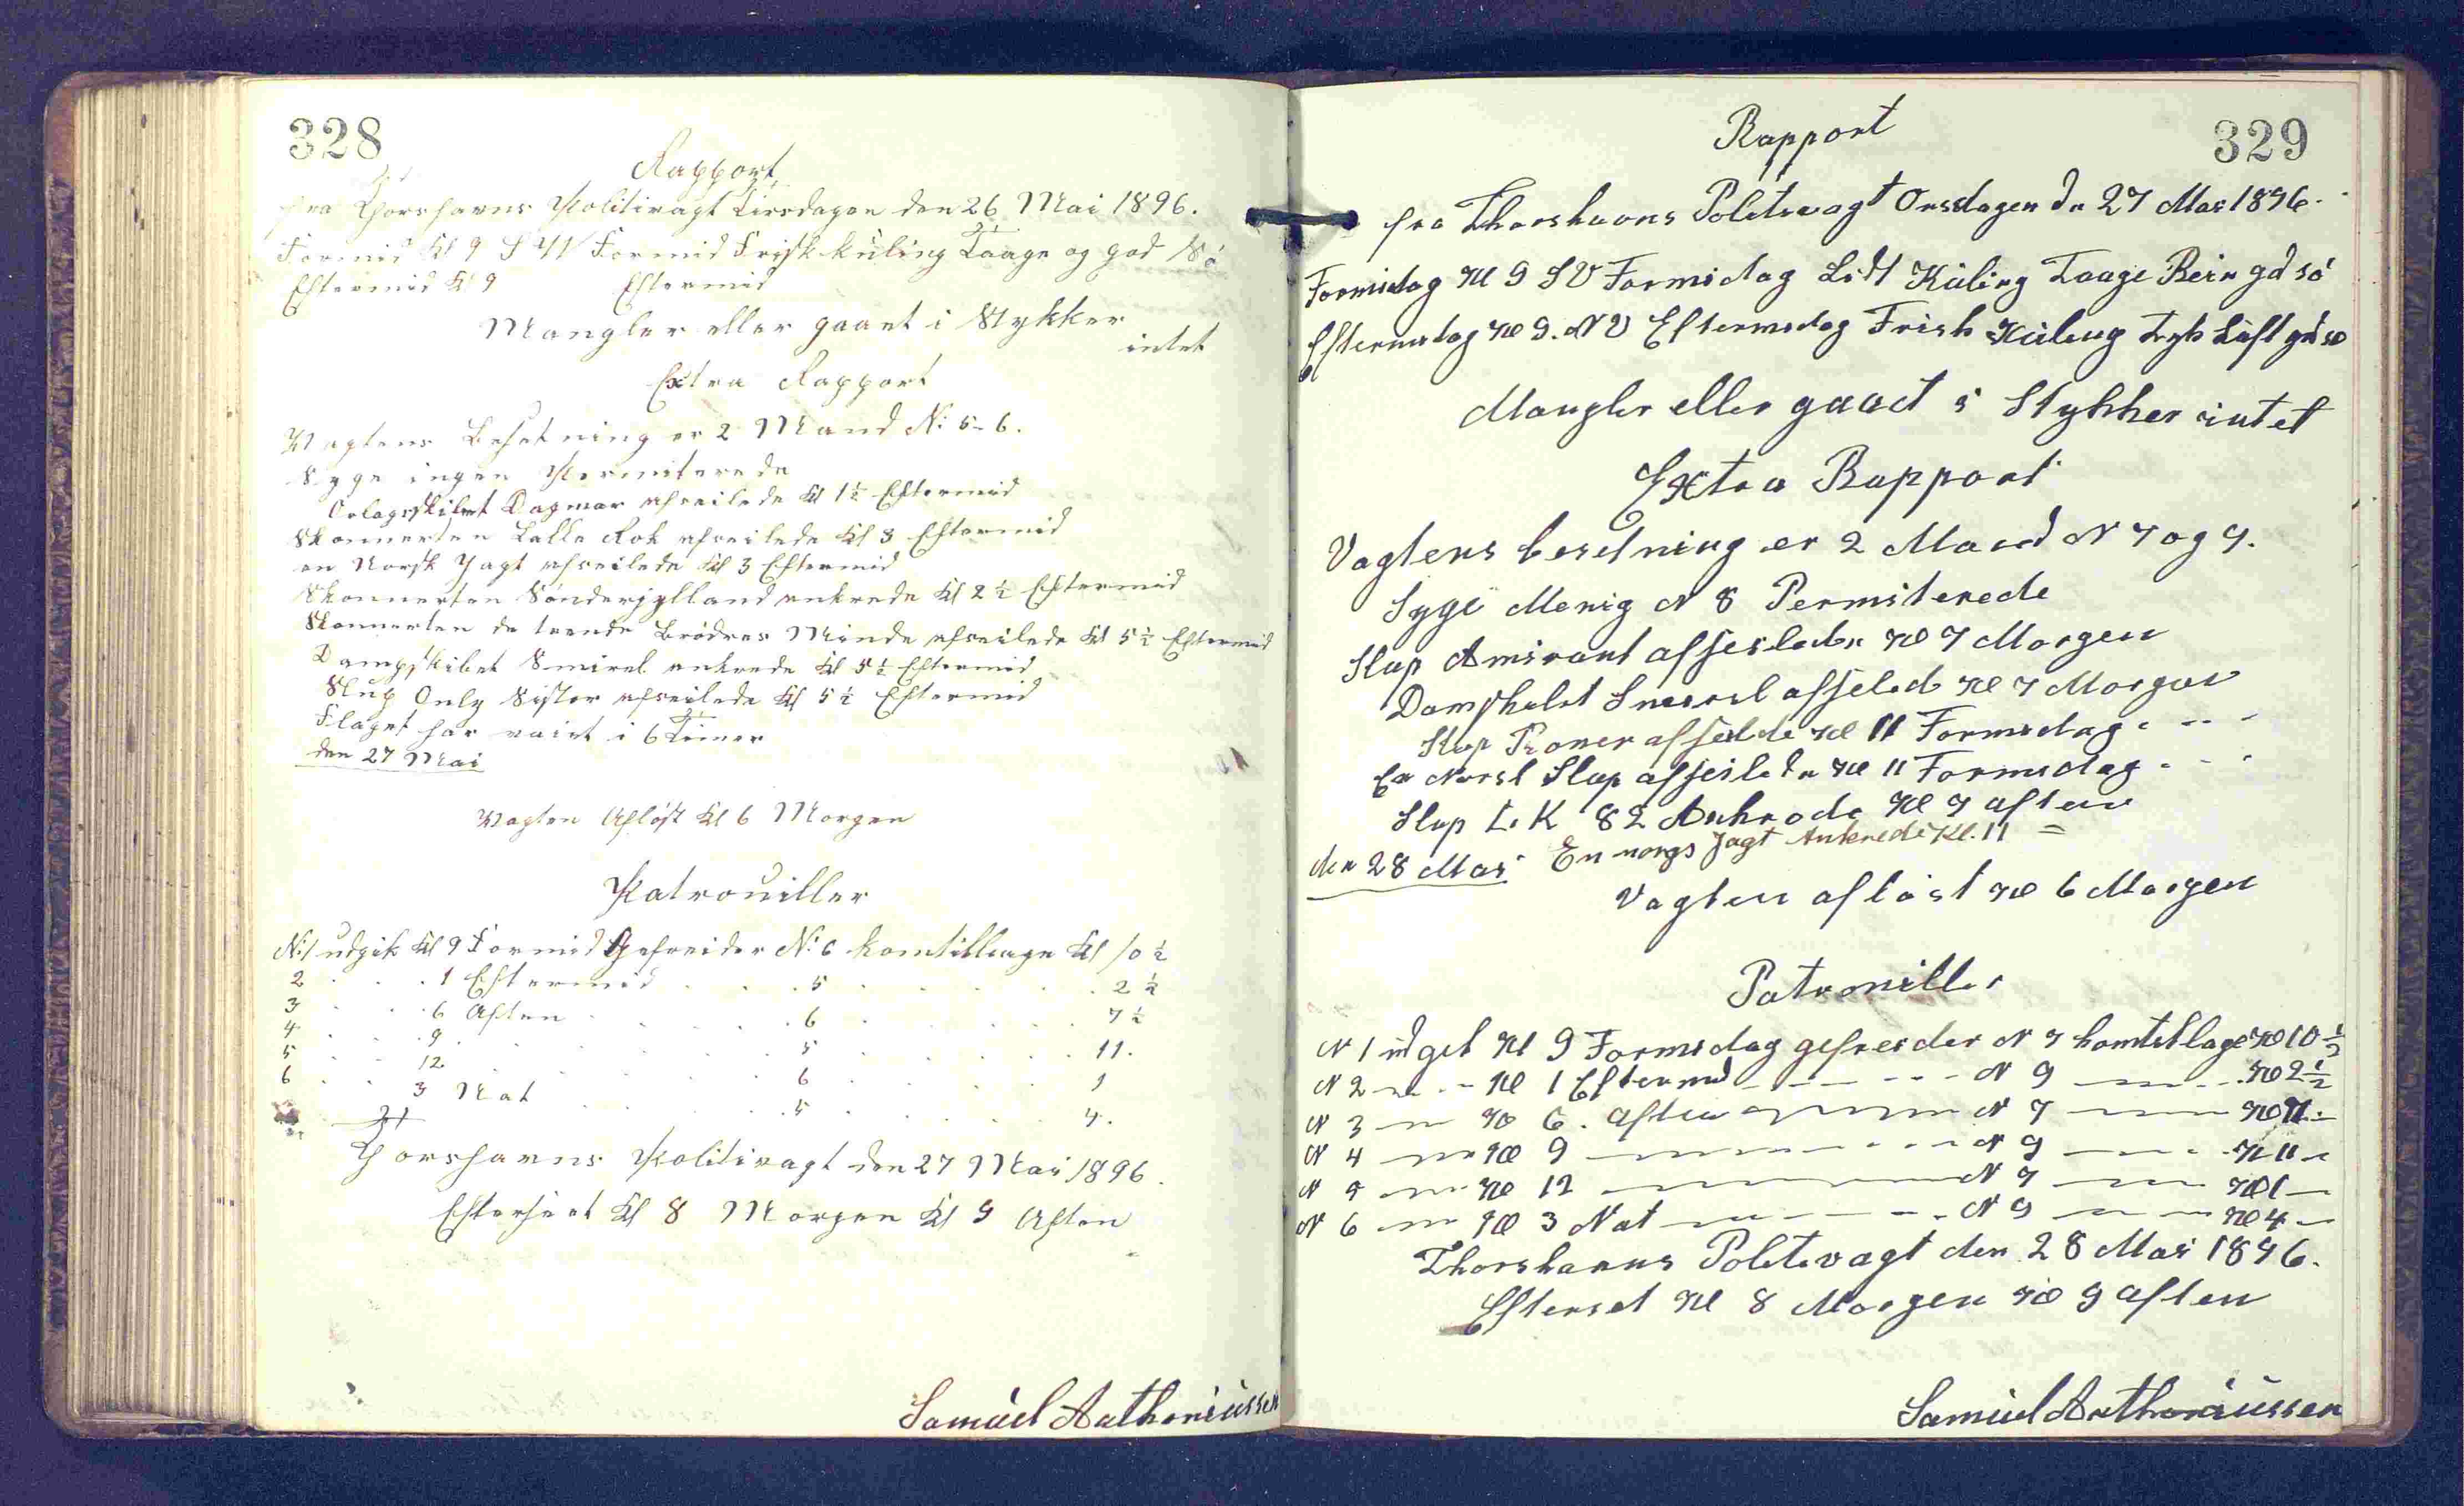 328
Rapport
fra Thorshavns Politivagt Tirsdagen den 26 Mai 1896.
Formid Kl 9 S W Formid Frisk kuling Taage og god Sö
Eftermid Kl 9 Eftermid
Mangler eller gaaet i Stykker
intet
Extra Rapport
Vagtens Besetning er 2 Mand N: 5-6.
Syge ingen Permiterede
Orlogsskibet Dagmar afseilede Kl 1½ Eftermid
Skonnerten Lalla Rok afseilede Kl 3 Eftermid
en Norsk Jagt afseilede Kl 3 Eftermid
Skonnerten Sønderjylland ankrede Kl 2½ Eftermid
Skonnerten de tvende Brödres Minde afseilede Kl 5½ Eftermid
Dampskibet Smiril ankrede Kl 5½ Eftermid
Slup Only Sister afseilede Kl 5½ Eftermid
Flaget har vaiet i 6 Timer
den 27 Mai
Vagten Aflöst Kl 6 Morgen
Patrouiller
N:1 udgik Kl 9 Formid Gefreider N: 6 komtilbage Kl 10½
2 . . . 1 Eftermid . . . 5 . . . . . . 2½
3 . . . 6 Aften . . . . 6 . . . . . 7½
4 . . . 9 . . . . . 5 . . . . . 11.
5 . . . 12 . . . . . 6 . . . . . 1
6 . . . 3 Nat . . . . 5 . . . . 4.
Thorshavns Politivagt den 27 Mai 1896.
Efterseet Kl 8 Morgen Kl 9 Aften
Samúel Anthoniússen
329
Rapport
fra Thorshavns Politivagt Onsdagen dn 27 Mai 1896.
Formidag Kl 9 SV Formidag Lidt Kúling Taage Rein gd sö
Eftermidag Kl 9. NV Eftermidag Frish Kúling Tyk Lúft gd sö
Mangler eller gaaet i Stykker intet
Extra Rapport
Vagtens besetning er 2 Mand N 7 og 9.
Syge Menig N 8 Permiterede
Slup Amirant afseiledn Kl 7 Morgen
Kl 7 Morgen
Slup Kl 11 Formidag . . .
En Norsk Slup afseiledn Kl 11 Formidag . . .
Slup L. K 82 Ankrede Kl 7 aften
den 28 Mai En norgs Jagt Ankrede Kl. 11 =
Vagten aflöst Kl 6 Morgen
Patrouiller
N 1 udgik Kl 9 Formidag gefreider N 7 komtilbage Kl 10½
N 2 — Kl 1 Eftermid — N 9 — Kl 2½
N 3 — Kl 6. aften — N 7 —
N 4 — Kl 9 — N 9 — Kl 11 —
N 5 — Kl 12 — N 7 — Kl 1 —
N 6 — Kl 3 Nat — N 9 — Kl 4 —
Thorshavns Politivagt den 28 Mai 1896.
Efterset Kl 8 Morgen Kl 9 aften
Samúel Anthoniússen